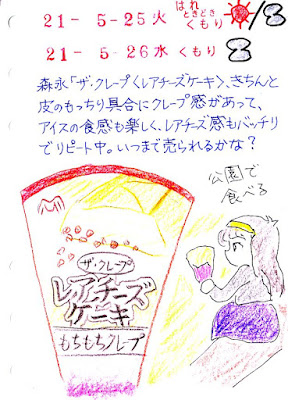 21-5-25火 はれときどきくもり /8
21-5-26水 くもり 8
森永「ザ・クレープ〈レアチーズケーキ〉、きちんと
皮のもっちり具合にクレープ感があって、
アイスの食感も楽しく、レアチーズ感もバッチリ
でリピート中。いつまで売られるかな？
公園で
食べる
ザ・クレープ
レアチーズ
ケーキ
もちもちクレープ